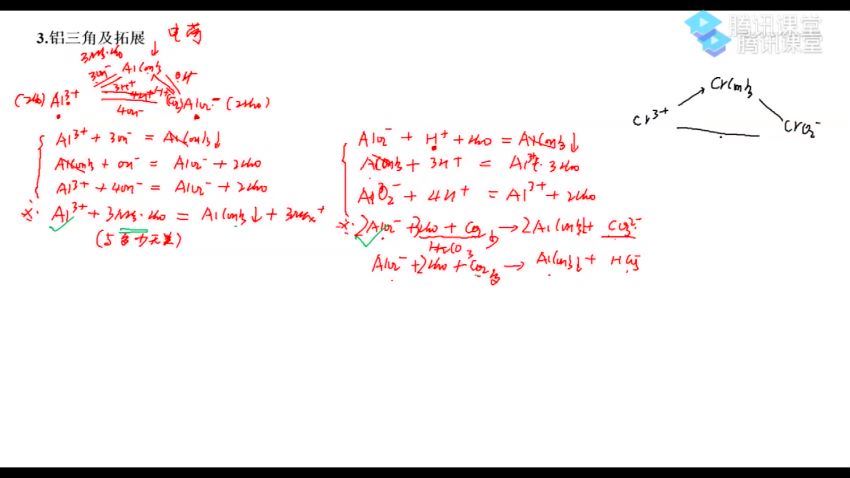 腾讯课堂
腾讯课堂
3.铝三角及拓展
电荷
3NH₃·H₂O
3OH⁻ Al(OH)₃ OH⁻
3H⁺ H⁺
4H⁺ (CO₂)
(2H₂O) Al³⁺ AlO₂⁻ (2H₂O)
4OH⁻
Al³⁺ + 3OH⁻ = Al(OH)₃↓
Al(OH)₃ + OH⁻ = AlO₂⁻ + 2H₂O
Al³⁺ + 4OH⁻ = AlO₂⁻ + 2H₂O
※: Al³⁺ + 3NH₃·H₂O = Al(OH)₃↓ + 3NH₄⁺
(与多少无关)
AlO₂⁻ + H⁺ + H₂O = Al(OH)₃↓
Al(OH)₃ + 3H⁺ = Al³⁺ + 3H₂O
AlO₂⁻ + 4H⁺ = Al³⁺ + 2H₂O
※: 2AlO₂⁻ + 3H₂O + CO₂ → 2Al(OH)₃↓ + CO₃²⁻
H₂CO₃
AlO₂⁻ + 2H₂O + CO₂多 → Al(OH)₃↓ + HCO₃⁻
Cr(OH)₃
Cr³⁺
CrO₂⁻